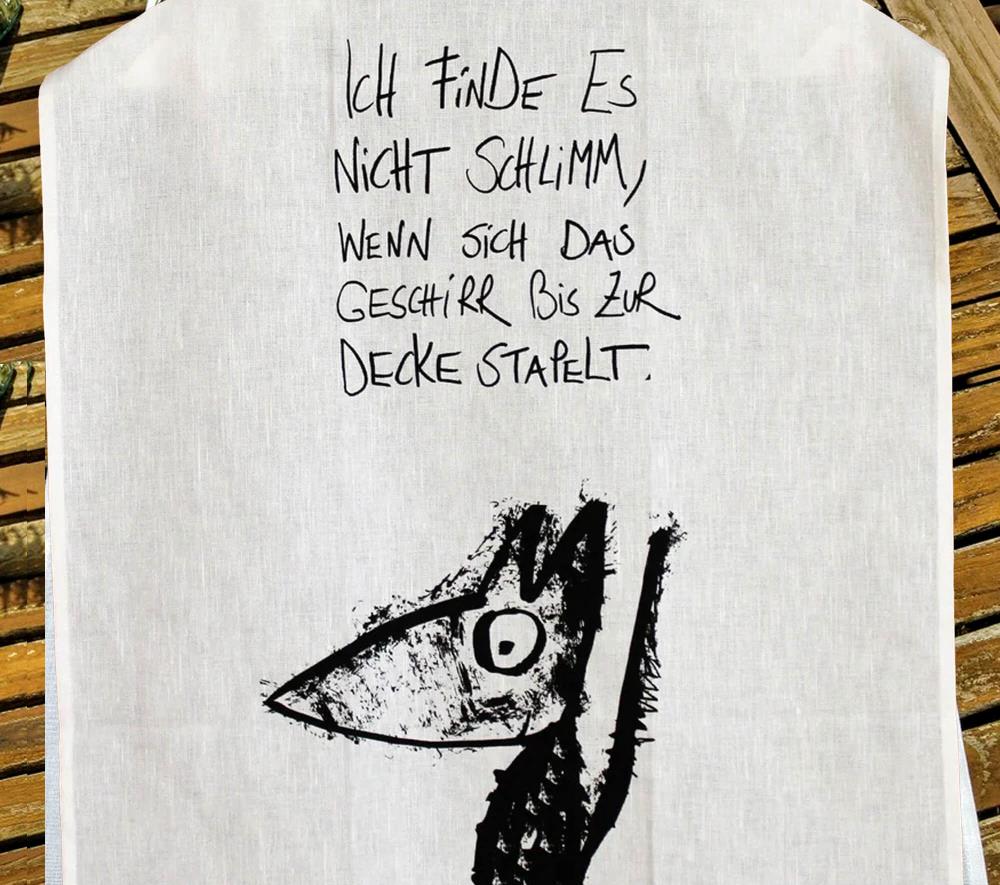 ICH FiNDE ES
NiCHT SCHLiMM,
WENN SiCH DAS
GESCHiRR BiS ZUR
DECKE STAPELT.